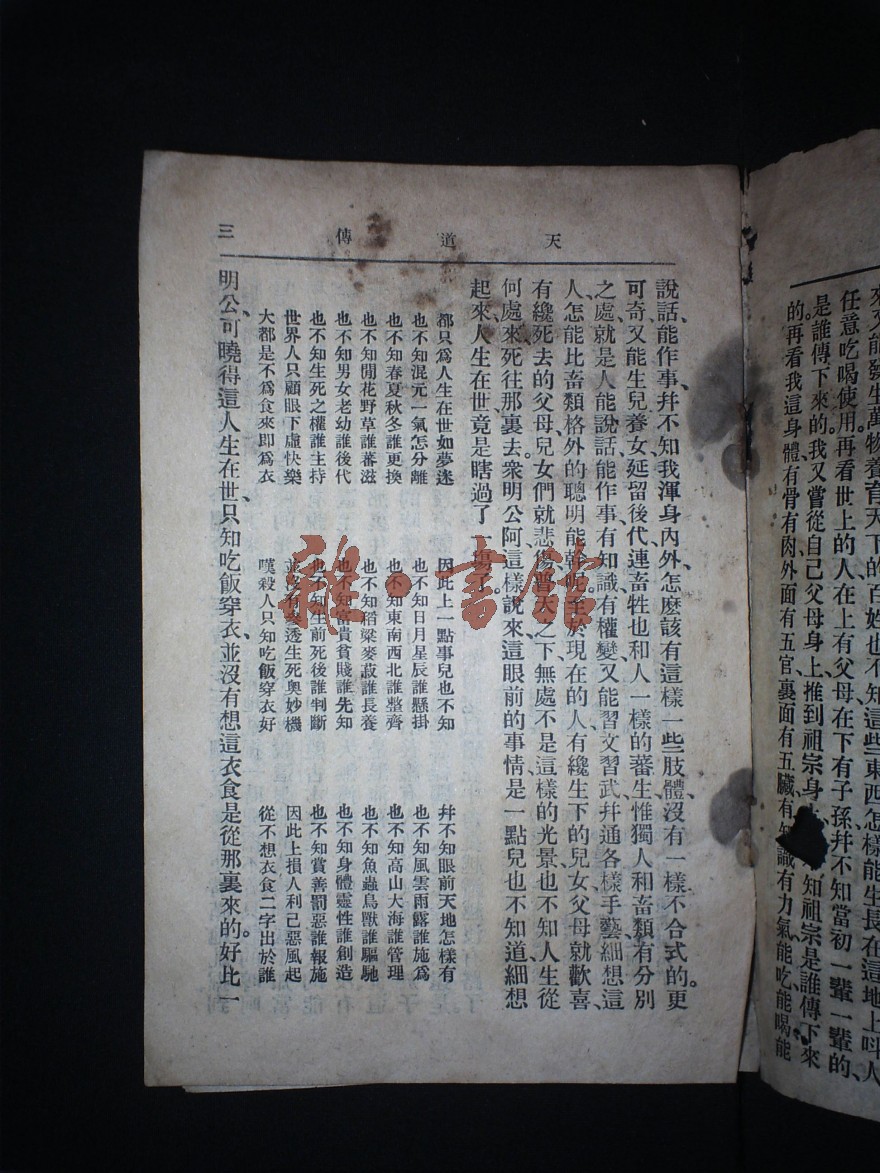 來又能發生萬物養育天下的百姓也不知這些東西怎樣能生長在這地上叫人
任意吃喝使用再看世上的人在上有父母在下有子孫幷不知當初一輩一輩的、
是誰傳下來的。我又嘗從自己父母身上推到祖宗身 知祖宗是誰傳下來
的再看我這身體有骨有肉外面有五官、裏面有五臟有知識有力氣能吃能喝能
天道傳
三
說話、能作事、幷不知我渾身內外、怎麼該有這樣一些肢體、沒有一樣不合式的。更
可奇、又能生兒養女延留後代、連畜牲也和人一樣的蕃生、惟獨人和畜類有分別
之處、就是人能說話、能作事、有知識有權變、又能習文習武、幷通各樣手藝、細想這
人、怎能比畜類格外的聰明能幹呢。至於現在的人、有纔生下的兒女、父母就歡喜、
有纔死去的父母、兒女們就悲傷、普天之下、無處不是這樣的光景、也不知人生從
何處來、死往那裏去、衆明公阿、這樣說來、這眼前的事情、是一點兒也不知道、細想
起來、人生在世、竟是瞎過了一塲了。
都只爲人生在世如夢迷 因此上一點事兒也不知 幷不知眼前天地怎樣有
也不知混元一氣怎分離 也不知日月星辰誰懸掛 也不知風雲雨露誰施爲
也不知春夏秋冬誰更換 也不知東南西北誰整齊 也不知高山大海誰管理
也不知閒花野草誰蕃滋 也不知稻粱麥菽誰長養 也不知魚蟲鳥獸誰驅馳
也不知男女老幼誰後代 也不知富貴貧賤誰先知 也不知身體靈性誰創造
也不知生死之權誰主持 也不知生前死後誰判斷 也不知賞善罰惡誰報施
世界人只顧眼下虛快樂 並沒有參透生死奧妙機 因此上損人利己惡風起
大都是不爲食來即爲衣 嘆殺人只知吃飯穿衣好 從不想衣食二字出於誰
明公、可曉得這人生在世、只知吃飯穿衣、並沒有想這衣食是從那裏來的。好比一
雅·書館